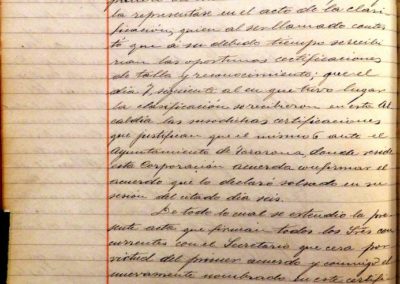 la representase en el acto de la clasi
ficación, quien al ser llamado contes
tó que a su debido tiempo se recibi
rian las oportunas certificaciones
de talla y reconocimiento; que el
dia 7, siguiente al en que tuvo lugar
la clasificación se recibieron en esta Al
caldia las susodichas certificaciones
que justifican que el mismo 6 ante el
Ayuntamiento de Tarazona, donde reside
esta Corporación acuerda confirmar el
acuerdo que lo declaró soldado en su
sesión del citado dia seis.
De todo lo cual se extendió la pre
sente acta que firman todos los Sres con
currentes con el Secretario que cesa por
virtud del primer acuerdo y conmigo el
nuevamente nombrado en este certifi